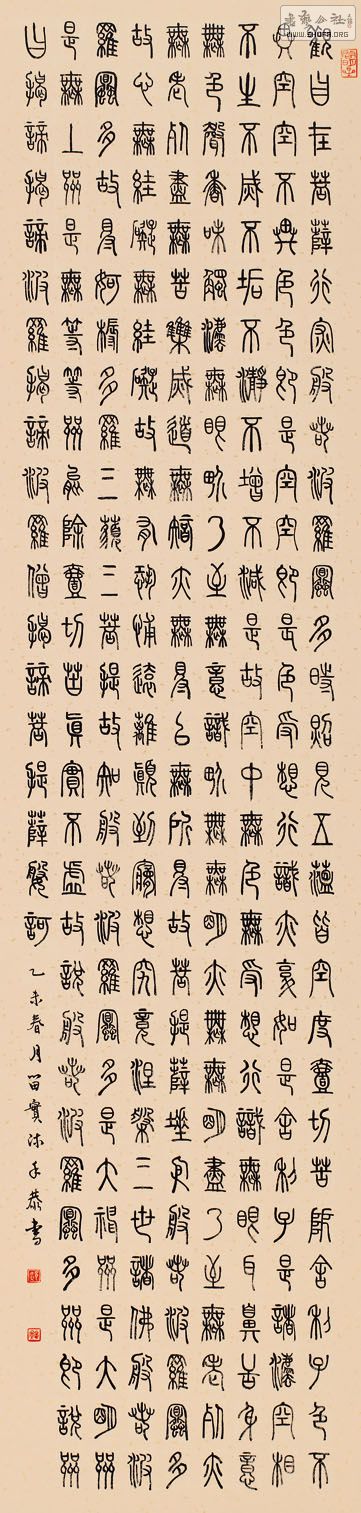 觀自在菩薩行深般若波羅蜜多時照見五蘊皆空度一切苦厄舍利子色不
異空空不異色色即是空空即是色受想行識亦復如是舍利子是諸法空相
不生不滅不垢不淨不增不減是故空中無色無受想行識無眼耳鼻舌身意
無色聲香味觸法無眼界乃至無意識界無無明亦無無明盡乃至無老死亦
無老死盡無苦集滅道無智亦無得以無所得故菩提薩埵依般若波羅蜜多
故心無罣礙無罣礙故無有恐怖遠離顛倒夢想究竟涅槃三世諸佛般若波
羅蜜多故得阿耨多羅三藐三菩提故知般若波羅蜜多是大神咒是大明咒
是無上咒是無等等咒能除一切苦真實不虛故說般若波羅蜜多咒即說咒
曰揭諦揭諦波羅揭諦波羅僧揭諦菩提薩婆訶
乙未春月留實沐手恭書